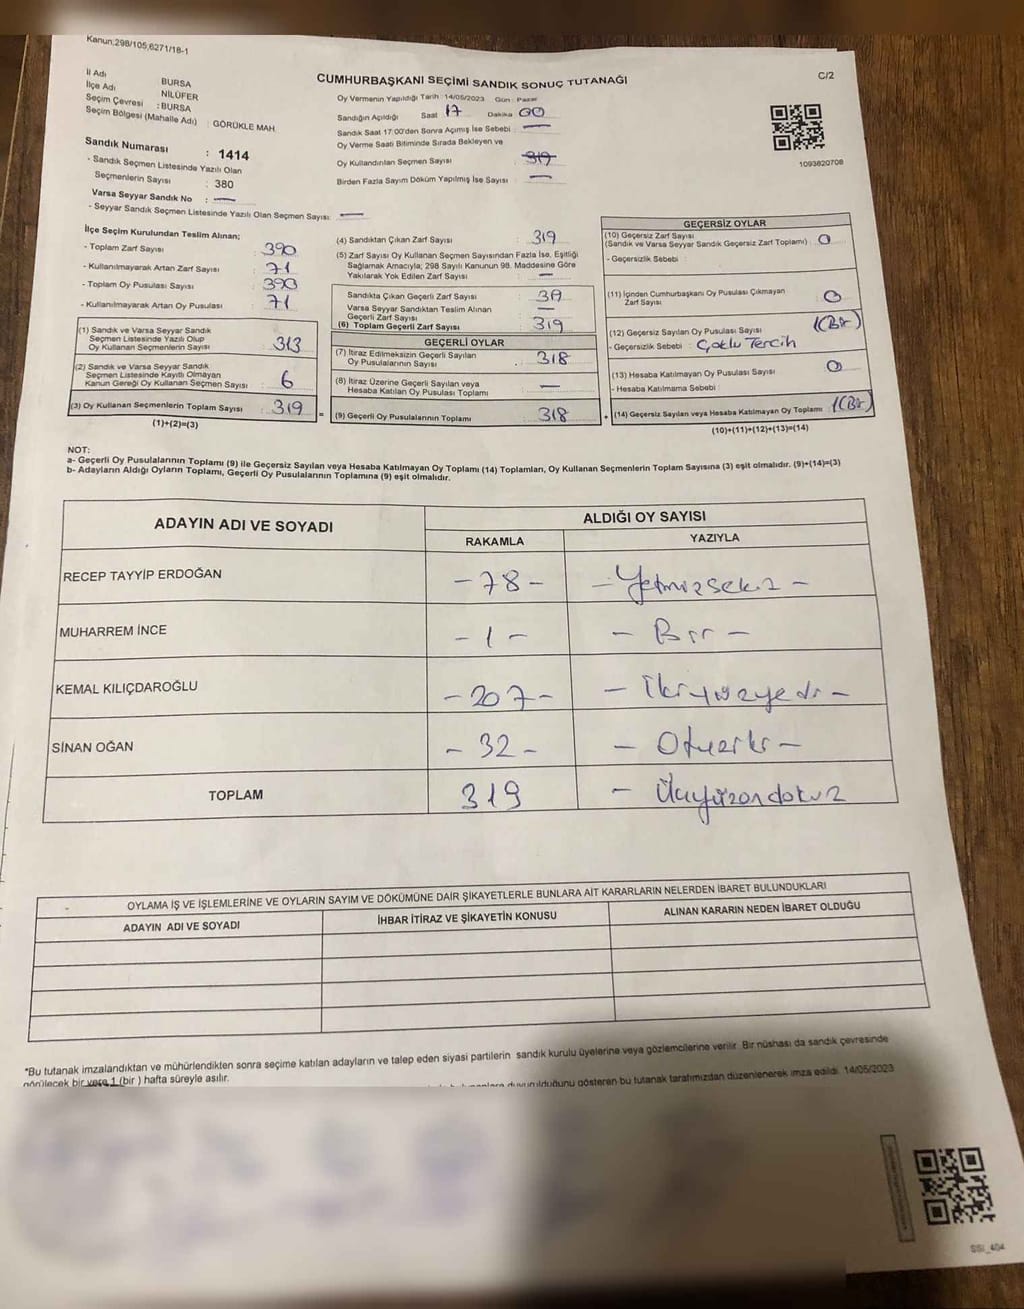 Kanun:298/105,6271/18-1
CUMHURBAŞKANI SEÇİMİ SANDIK SONUÇ TUTANAĞI
C/2
İl Adı BURSA
İlçe Adı NİLÜFER
Seçim Çevresi :BURSA
Seçim Bölgesi (Mahalle Adı) : GÖRÜKLE MAH.
Sandık Numarası : 1414
- Sandık Seçmen Listesinde Yazılı Olan
Seçmenlerin Sayısı : 380
Varsa Seyyar Sandık No : —
- Seyyar Sandık Seçmen Listesinde Yazılı Olan Seçmen Sayısı: —
Oy Vermenin Yapıldığı Tarih : 14/05/2023 Gün : Pazar
Sandığın Açıldığı Saat 17 Dakika 00
Sandık Saat 17:00'den Sonra Açımış İse Sebebi : —
Oy Verme Saati Bitiminde Sırada Bekleyen ve
Oy Kullandırılan Seçmen Sayısı : 319
Birden Fazla Sayım Döküm Yapılmış İse Sayısı : —
1093820708
İlçe Seçim Kurulundan Teslim Alınan;
- Toplam Zarf Sayısı : 390
- Kullanılmayarak Artan Zarf Sayısı : 71
- Toplam Oy Pusulası Sayısı : 390
- Kullanılmayarak Artan Oy Pusulası : 71
(1) Sandık ve Varsa Seyyar Sandık
Seçmen Listesinde Yazılı Olup
Oy Kullanan Seçmenlerin Sayısı : 313
(2) Sandık ve Varsa Seyyar Sandık
Seçmen Listesinde Kayıtlı Olmayan
Kanun Gereği Oy Kullanan Seçmen Sayısı : 6
(3) Oy Kullanan Seçmenlerin Toplam Sayısı : 319
(1)+(2)=(3)
(4) Sandıktan Çıkan Zarf Sayısı : 319
(5) Zarf Sayısı Oy Kullanan Seçmen Sayısından Fazla İse, Eşitliği
Sağlamak Amacıyla; 298 Sayılı Kanunun 98. Maddesine Göre
Yakılarak Yok Edilen Zarf Sayısı : —
Sandıkta Çıkan Geçerli Zarf Sayısı : 319
Varsa Seyyar Sandıktan Teslim Alınan
Geçerli Zarf Sayısı : —
(6) Toplam Geçerli Zarf Sayısı : 319
GEÇERLİ OYLAR
(7) İtiraz Edilmeksizin Geçerli Sayılan
Oy Pusulalarının Sayısı : 318
(8) İtiraz Üzerine Geçerli Sayılan veya
Hesaba Katılan Oy Pusulası Toplamı : —
= (9) Geçerli Oy Pusulalarının Toplamı : 318
GEÇERSİZ OYLAR
(10) Geçersiz Zarf Sayısı
(Sandık ve Varsa Seyyar Sandık Geçersiz Zarf Toplamı) : 0
- Geçersizlik Sebebi :
(11) İçinden Cumhurbaşkanı Oy Pusulası Çıkmayan
Zarf Sayısı : 0
(12) Geçersiz Sayılan Oy Pusulası Sayısı : 1(Bir)
- Geçersizlik Sebebi : Çoklu Tercih
(13) Hesaba Katılmayan Oy Pusulası Sayısı : 0
- Hesaba Katılmama Sebebi :
+ (14) Geçersiz Sayılan veya Hesaba Katılmayan Oy Toplamı : 1(Bir)
(10)+(11)+(12)+(13)=(14)
NOT:
a- Geçerli Oy Pusulalarının Toplamı (9) ile Geçersiz Sayılan veya Hesaba Katılmayan Oy Toplamı (14) Toplamları, Oy Kullanan Seçmenlerin Toplam Sayısına (3) eşit olmalıdır. (9)+(14)=(3)
b- Adayların Aldığı Oyların Toplamı, Geçerli Oy Pusulalarının Toplamına (9) eşit olmalıdır.
ADAYIN ADI VE SOYADI
ALDIĞI OY SAYISI
RAKAMLA YAZIYLA
RECEP TAYYİP ERDOĞAN - 78 - - Yetmişsekiz -
MUHARREM İNCE - 1 - - Bir -
KEMAL KILIÇDAROĞLU - 207 - - İkiyüzyedi -
SİNAN OĞAN - 32 - - Otuziki -
TOPLAM 319 - Üçyüzondokuz
OYLAMA İŞ VE İŞLEMLERİNE VE OYLARIN SAYIM VE DÖKÜMÜNE DAİR ŞİKAYETLERLE BUNLARA AİT KARARLARIN NELERDEN İBARET BULUNDUKLARI
ADAYIN ADI VE SOYADI İHBAR İTİRAZ VE ŞİKAYETİN KONUSU ALINAN KARARIN NEDEN İBARET OLDUĞU
*Bu tutanak imzalandıktan ve mühürlendikten sonra seçime katılan adayların ve talep eden siyasi partilerin sandık kurulu üyelerine veya gözlemcilerine verilir. Bir nüshası da sandık çevresinde
görülecek bir yere 1 (bir) hafta süreyle asılır.
duyurulduğunu gösteren bu tutanak tarafımızdan düzenlenerek imza edildi. 14/05/2023
SSI_404